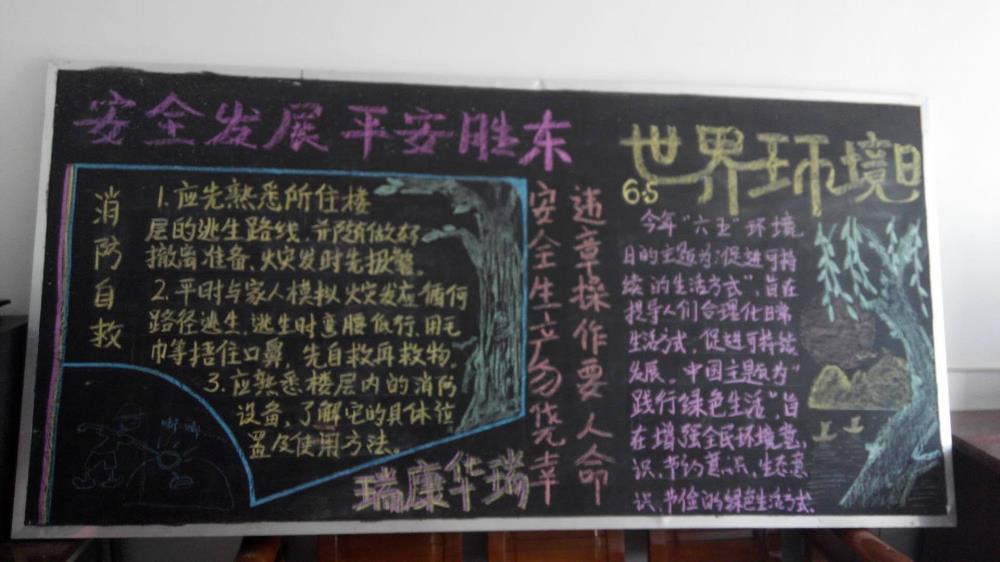 安全发展平安胜东
消防自救
1.应先熟悉所住楼
层的逃生路线,并随做好
撤离准备,火灾发时先报警。
2.平时与家人模拟火灾发应循何
路径逃生,逃生时重腰低行,用毛
巾等捂住口鼻,先自救再救物。
3.应熟悉楼层内的消防
设备,了解它的具体位
置及使用方法。
瑞康华瑞
安全生产勿侥幸
违章操作要人命
世界环境日
6.5
今年"六五"环境
日的主题为"促进可持
续的生活方式",旨在
提导人们合理化日常
生活方式,促进可持续
发展。中国主题为"
践行绿色生活",旨
在增强全民环境意
识,节约意识,生态意
识,节俭的绿色生活方式.